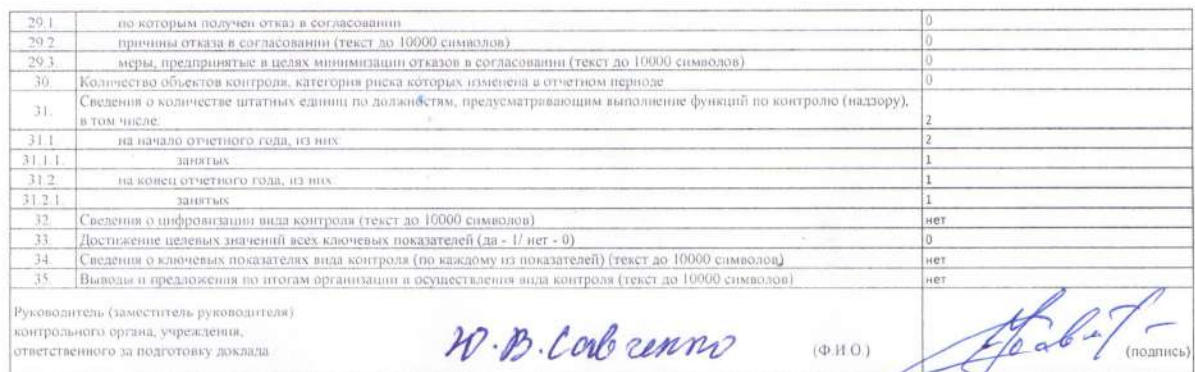 29.1. по которым получен отказ в согласовании 0
29.2. причины отказа в согласовании (текст до 10000 символов) 0
29.3. меры, предпринятые в целях минимизации отказов в согласовании (текст до 10000 символов) 0
30. Количество объектов контроля, категория риска которых изменена в отчетном периоде 0
31. Сведения о количестве штатных единиц по должностям, предусматривающим выполнение функций по контролю (надзору),
в том числе: 2
31.1. на начало отчетного года, из них: 2
31.1.1. занятых 1
31.2. на конец отчетного года, из них: 1
31.2.1. занятых 1
32. Сведения о цифровизации вида контроля (текст до 10000 символов) нет
33. Достижение целевых значений всех ключевых показателей (да - 1/ нет - 0) 0
34. Сведения о ключевых показателях вида контроля (по каждому из показателей) (текст до 10000 символов) нет
35. Выводы и предложения по итогам организации и осуществления вида контроля (текст до 10000 символов) нет
Руководитель (заместитель руководителя)
контрольного органа, учреждения,
ответственного за подготовку доклада Ю.В.Савченко (Ф.И.О.) (подпись)